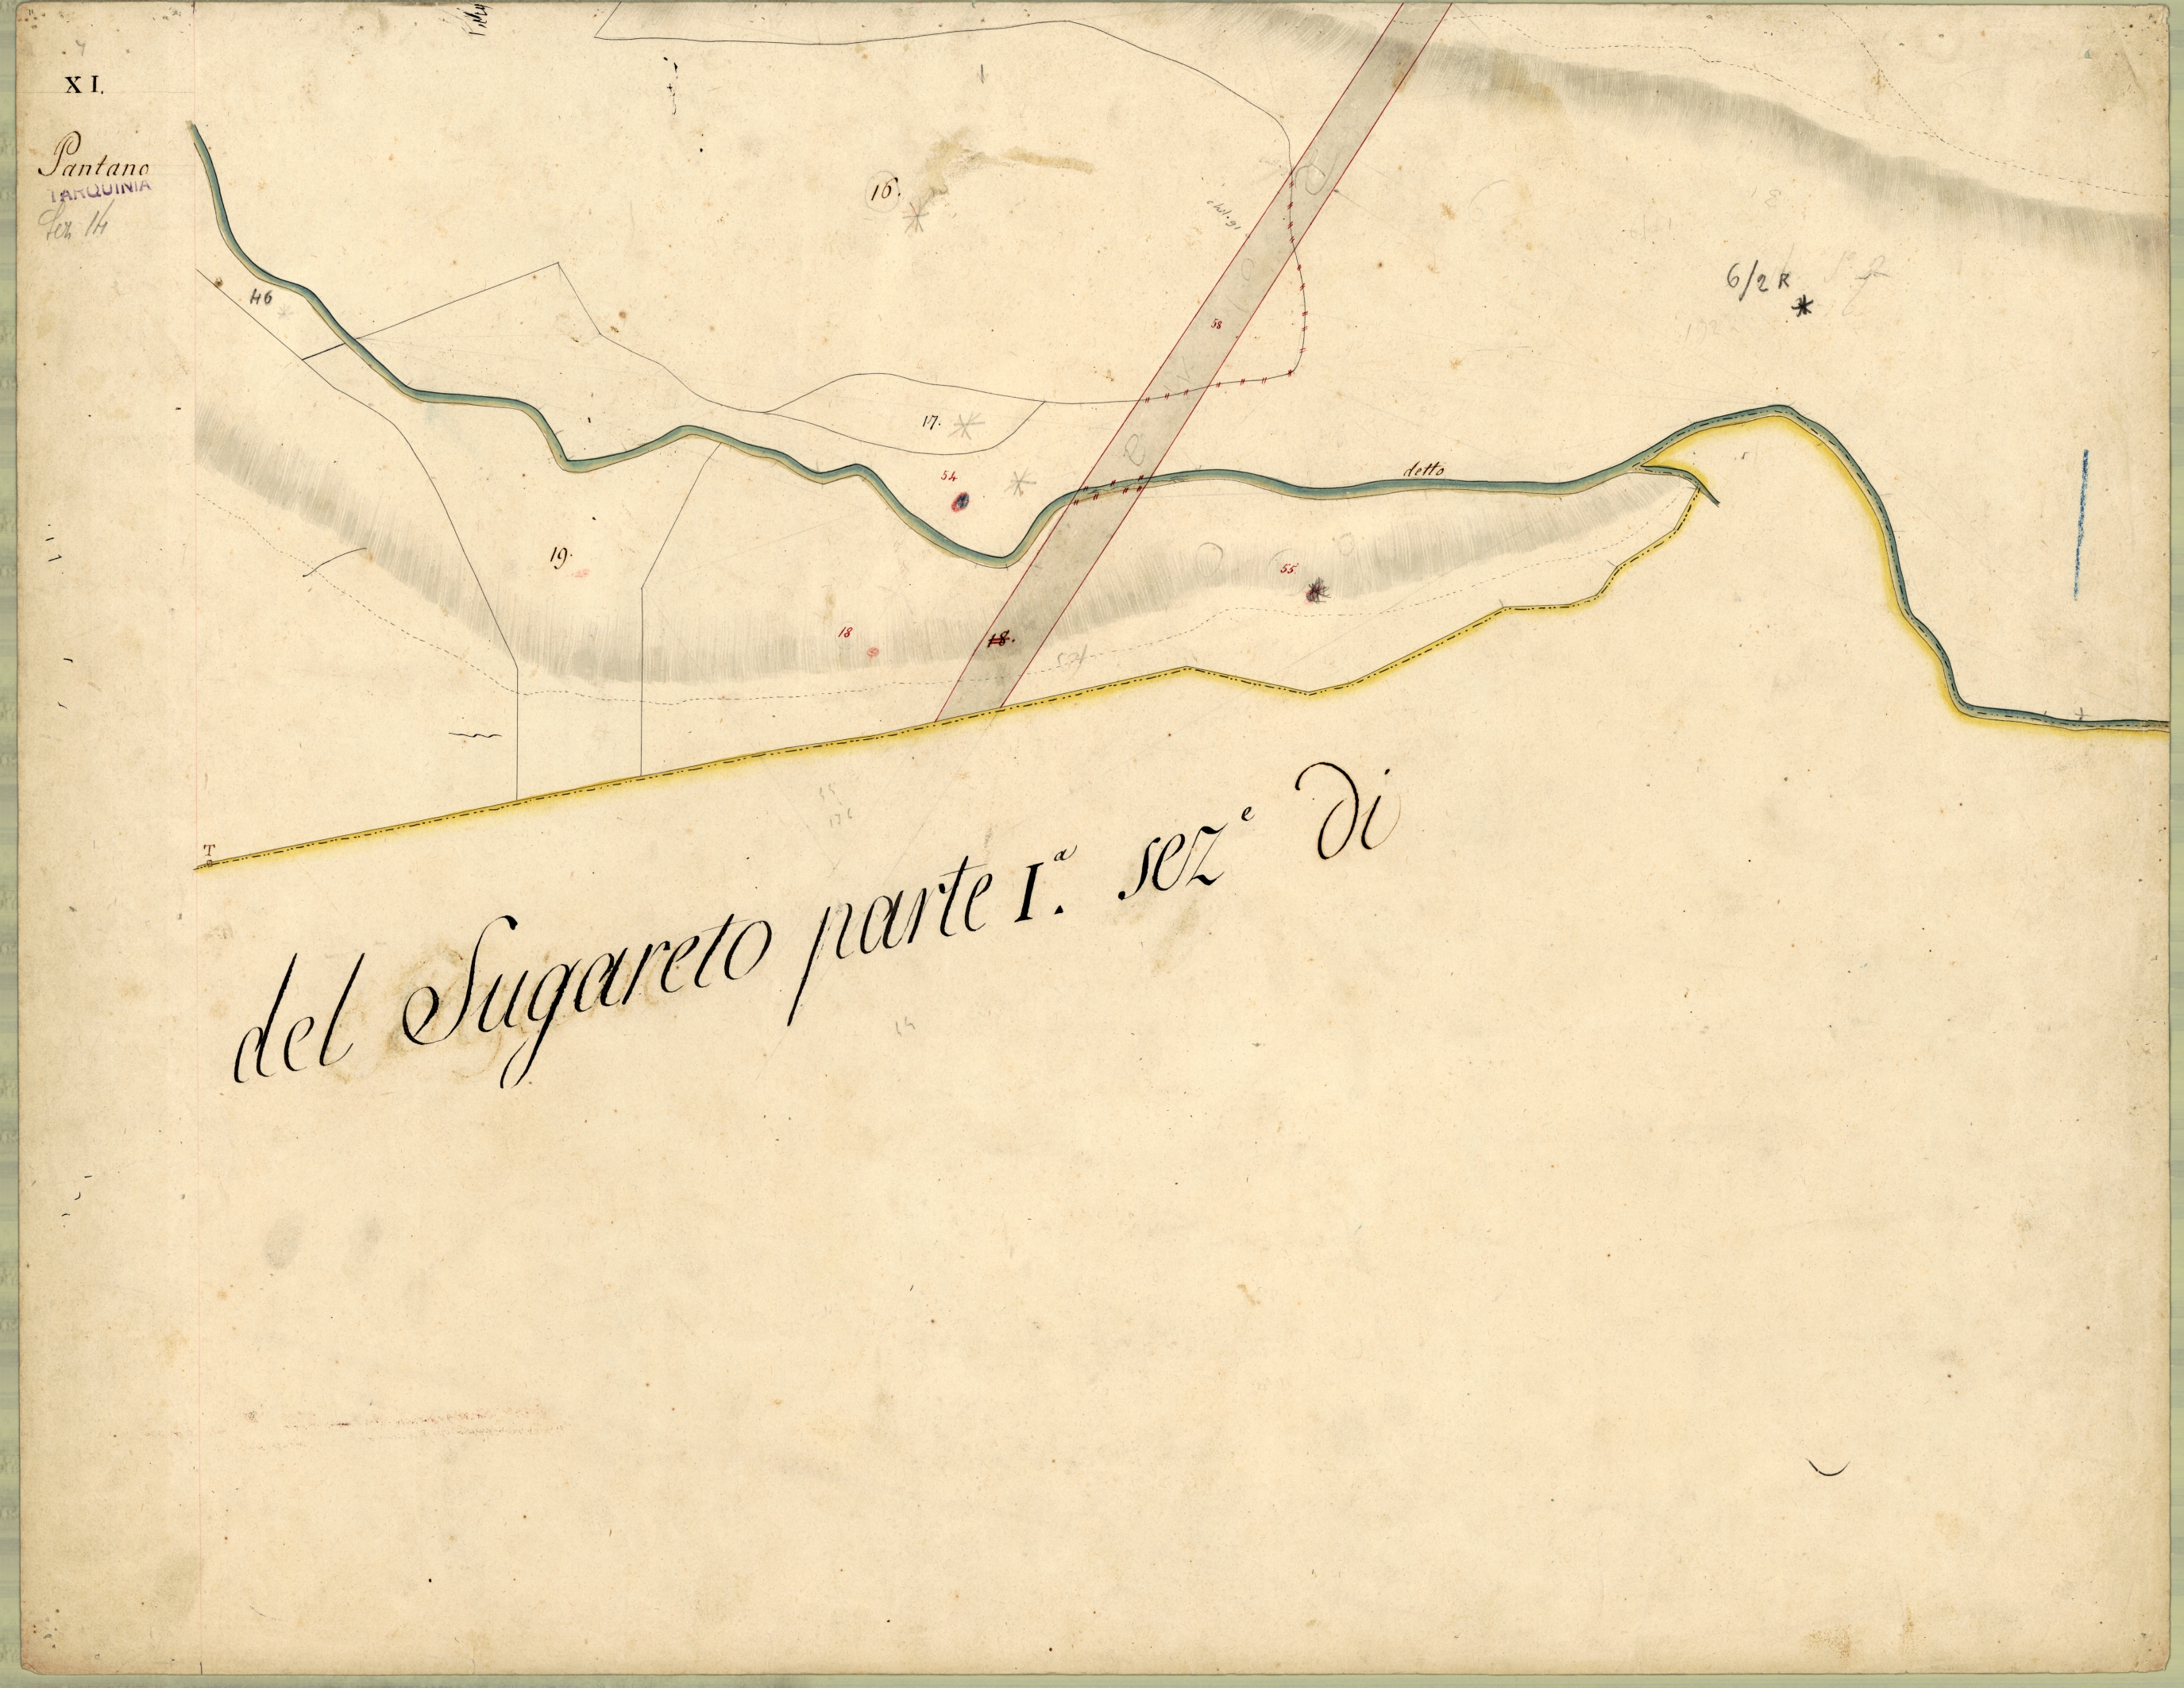 XI.
Pantano
TARQUINIA
Sez 14
16.
46
58
6/2 R
17.
54
detto
19.
55.
18
18.
T
del Sugareto parte I.ª sez.e di